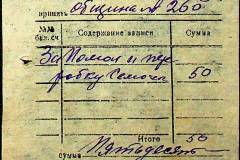 принять община № 260
№№ бал. сч. Содержание записи Сумма
За помол и пе-
робку семоч 50
Итого 50
сумма Пятьдесят